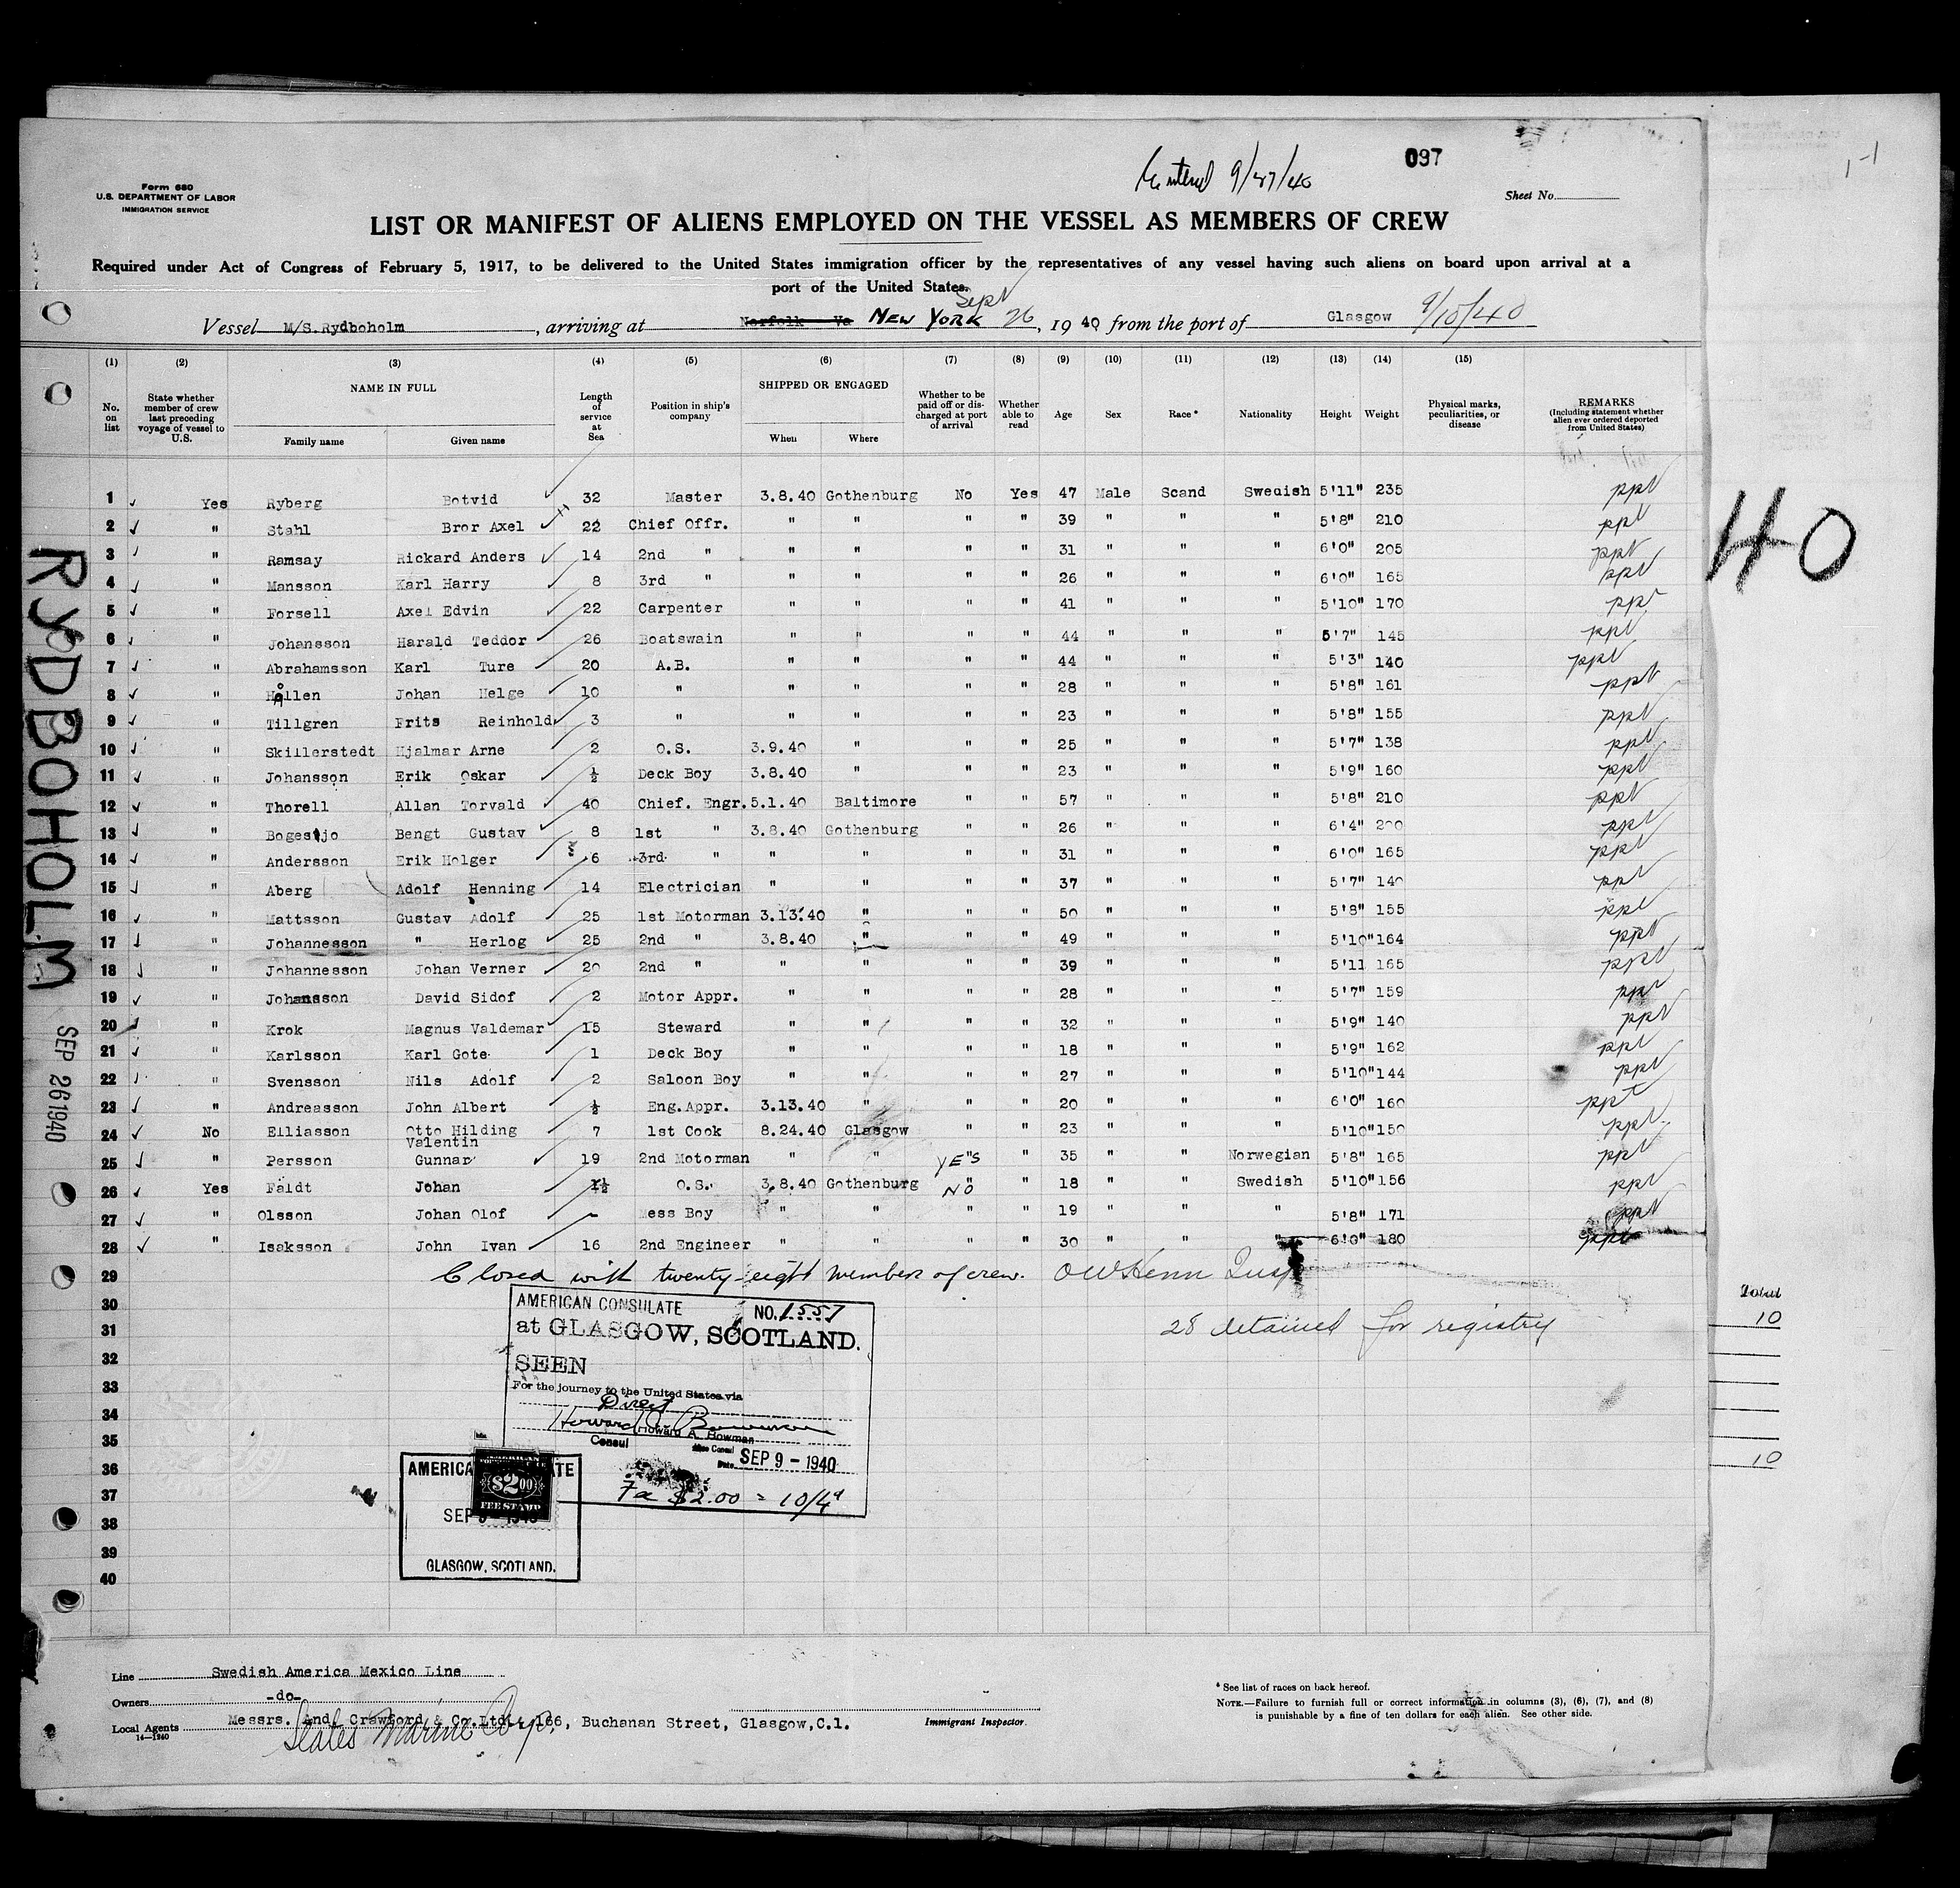 Entered 9/27/40
097
Form 680
U.S. DEPARTMENT OF LABOR
IMMIGRATION SERVICE
Sheet No.
LIST OR MANIFEST OF ALIENS EMPLOYED ON THE VESSEL AS MEMBERS OF CREW
Required under Act of Congress of February 5, 1917, to be delivered to the United States immigration officer by the representatives of any vessel having such aliens on board upon arrival at a
port of the United States.
Vessel M/S.Rydboholm, arriving at Norfolk Va NEW YORK Sept 26, 1940 from the port of Glasgow 9/10/40
(1) (2) (3) (4) (5) (6) (7) (8) (9) (10) (11) (12) (13) (14) (15)
No. on list
State whether member of crew last preceding voyage of vessel to U.S.
NAME IN FULL
Family name
Given name
Length of service at Sea
Position in ship's company
SHIPPED OR ENGAGED
When
Where
Whether to be paid off or discharged at port of arrival
Whether able to read
Age
Sex
Race *
Nationality
Height
Weight
Physical marks, peculiarities, or disease
REMARKS
(Including statement whether alien ever ordered deported from United States)
1 Yes Ryberg Botvid 32 Master 3.8.40 Gothenburg No Yes 47 Male Scand Swedish 5'11" 235 ppt
2 " Stahl Bror Axel 22 Chief Offr. " " " " 39 " " " 5'8" 210 ppt
3 " Ramsay Rickard Anders 14 2nd " " " " " 31 " " " 6'0" 205 ppt
4 " Mansson Karl Harry 8 3rd " " " " " 26 " " " 6'0" 165 ppt
5 " Forsell Axel Edvin 22 Carpenter " " " " 41 " " " 5'10" 170 ppt
6 " Johansson Harald Teddor 26 Boatswain " " " " 44 " " " 5'7" 145 ppt
7 " Abrahamsson Karl Ture 20 A.B. " " " " 44 " " " 5'3" 140 ppt
8 " Hållen Johan Helge 10 " " " " " 28 " " " 5'8" 161 ppt
9 " Tillgren Frits Reinhold 3 " " " " " 23 " " " 5'8" 155 ppt
10 " Skillerstedt Hjalmar Arne 2 O.S. 3.9.40 " " " 25 " " " 5'7" 138 ppt
11 " Johansson Erik Oskar ½ Deck Boy 3.8.40 " " " 23 " " " 5'9" 160 ppt
12 " Thorell Allan Torvald 40 Chief. Engr. 5.1.40 Baltimore " " 57 " " " 5'8" 210 ppt
13 " Bogestjo Bengt Gustav 8 1st " 3.8.40 Gothenburg " " 26 " " " 6'4" 200 ppt
14 " Andersson Erik Holger 6 3rd " " " " " 31 " " " 6'0" 165 ppt
15 " Aberg Adolf Henning 14 Electrician " " " " 37 " " " 5'7" 140 ppt
16 " Mattsson Gustav Adolf 25 1st Motorman 3.13.40 " " " 50 " " " 5'8" 155 ppt
17 " Johannesson " Herlog 25 2nd " 3.8.40 " " " 49 " " " 5'10" 164 ppt
18 " Johannesson Johan Verner 20 2nd " " " " " 39 " " " 5'11 165 ppt
19 " Johansson David Sidof 2 Motor Appr. " " " " 28 " " " 5'7" 159 ppt
20 " Krok Magnus Valdemar 15 Steward " " " " 32 " " " 5'9" 140 ppt
21 " Karlsson Karl Gote 1 Deck Boy " " " " 18 " " " 5'9" 162 ppt
22 " Svensson Nils Adolf 2 Saloon Boy " " " " 27 " " " 5'10" 144 ppt
23 " Andreasson John Albert ½ Eng.Appr. 3.13.40 " " " 20 " " " 6'0" 160 ppt
24 No Elliasson Otto Hilding Valentin 7 1st Cook 8.24.40 Glasgow " " 23 " " " 5'10" 150 ppt
25 " Persson Gunnar 19 2nd Motorman " " YES " 35 " " Norwegian 5'8" 165 ppt
26 Yes Faldt Johan 1½ O.S. 3.8.40 Gothenburg NO " 18 " " Swedish 5'10" 156 ppt
27 " Olsson Johan Olof - Mess Boy " " " " 19 " " " 5'8" 171 ppt
28 " Isaksson John Ivan 16 2nd Engineer " " " " 30 " " " 6'0" 180 ppt
29 Closed with twenty-eight members of crew.
30
31 28 detained for registry
32
33
34
35
36
37
38
39
40
AMERICAN CONSULATE NO. 1557
at GLASGOW, SCOTLAND.
SEEN
For the journey to the United States via
Direct
Howard A. Bowman
Howard A. Bowman
Consul
Vice Consul
Date SEP 9 - 1940
Fee $2.00 = 10/4d
AMERICAN CONSULATE
$2.00
FEE STAMP
SEP 9 - 1940
GLASGOW, SCOTLAND.
RYDBOHOLM
SEP 26 1940
40
Total
10
10
Line Swedish America Mexico Line
Owners -do-
Local Agents Messrs. And. Crawford & Co.Ltd., 166, Buchanan Street, Glasgow,C.1.
States Marine Corp.
14—1940
Immigrant Inspector.
* See list of races on back hereof.
NOTE.—Failure to furnish full or correct information in columns (3), (6), (7), and (8)
is punishable by a fine of ten dollars for each alien. See other side.